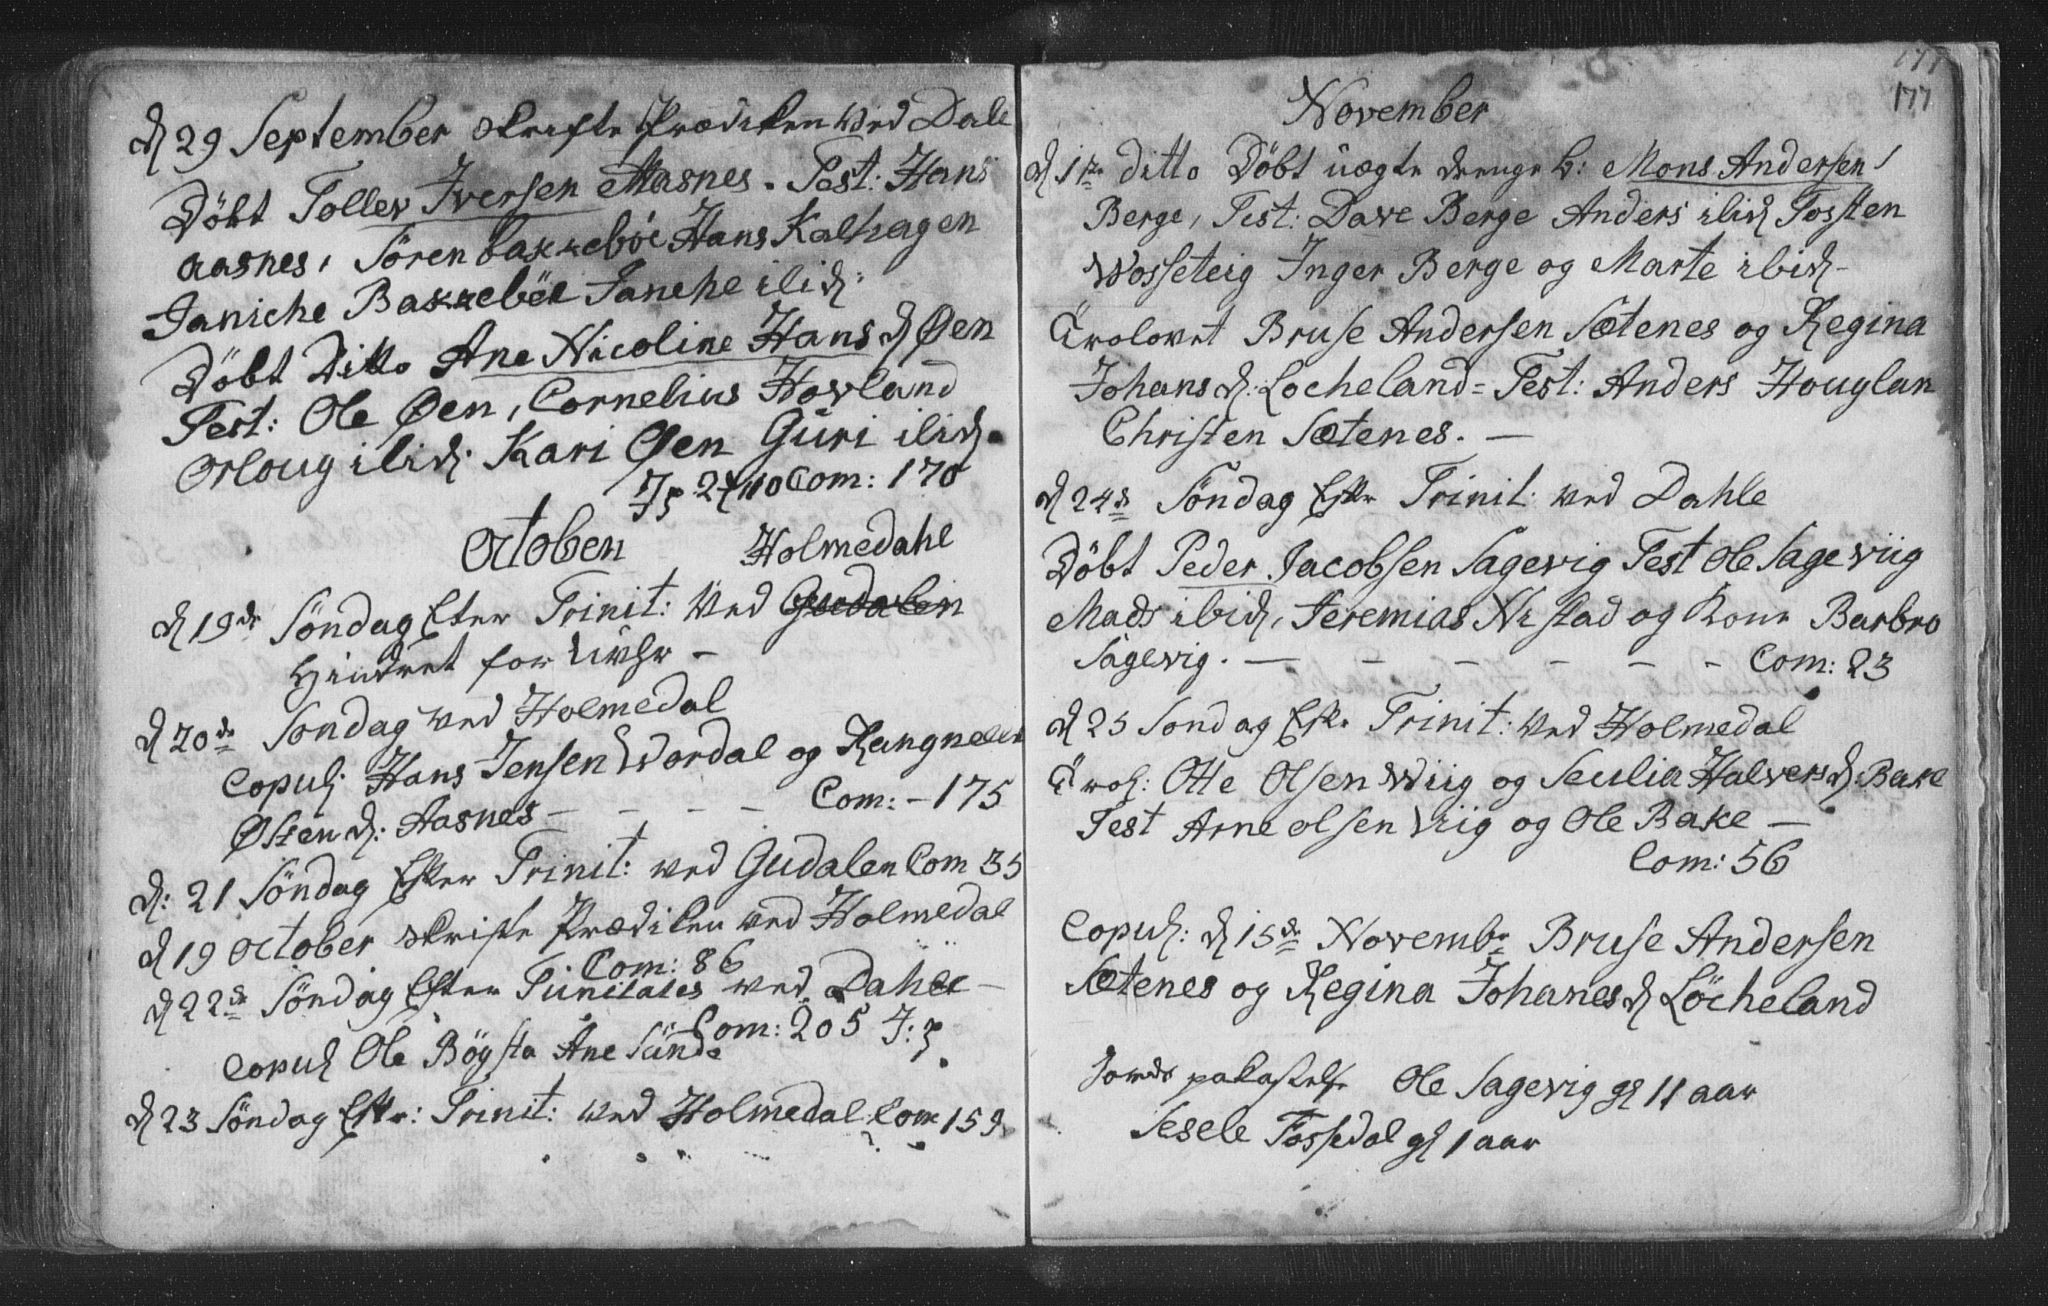 d 29 September Skrifte Prædiken ved Dale
Döbt Tollev Iversen Aasnes. Test: Hans
Aasnes, Sören Bakkeböe Hans Kalhagen
Janiche Bakkeböe Janche ibid:
Döbt Ditto Ane Nicoline Hans d Øen
Test: Ole Øen, Cornelius Hovland
ibid: Kari Øen Guri ibid.
Com: 170
October
Holmedahl
d 19de Söndag Efter Trinit: ved Gudalen
Hindret for Uvejr –
d 20de Söndag ved Holmedal
Copul: Hans Jensen Wardal og Rangnele
Østen d: Aasnes – – – – Com: – 175
d: 21 Söndag Efter Trinit: ved Gudalen Com 35
d 19 October Skrifte Prædiken ved Holmedal
Com: 86
d 22de Söndag Efter Trinitates ved Dahle –
Com: 205
Copul Ole Bögsta Ane Sunde
d 23 Söndag Eftr: Trinit: ved Holmedal Com 159
177
177
November
d 1te ditto Döbt uægte drenge b: Mons Andersen
Berge, Test: Dave Berge Anders ibid Tosten
Wosseteig Inger Berge og Marte ibid –
Trolovet Bruse Andersen Sætenes og Regina
Johans d: Locheland = Test: Anders Houglan
Christen Sætenes. –
d 24de Söndag Eftr Trinit: ved Dahle
Döbt Peder Jacobsen Sagevig Test Ole Sageviig
Mads ibid, Jeremias Nistad og Kone Barbro
Sagevig. – – – – – – Com: 23
d 25 Söndag Eftr Trinit: ved Holmedal
Trol: Otte Olsen Wiig og Seulia Halvers d: Bake
Test Arne Olsen Viig og Ole Bake –
Com: 56
Copul: d 15de Novembr Bruse Andersen
Sætenes og Regina Johanes d Löcheland
Jords pakastelse Ole Sagevig gl 11 aar
Sesele Fossedal gl 1 aar